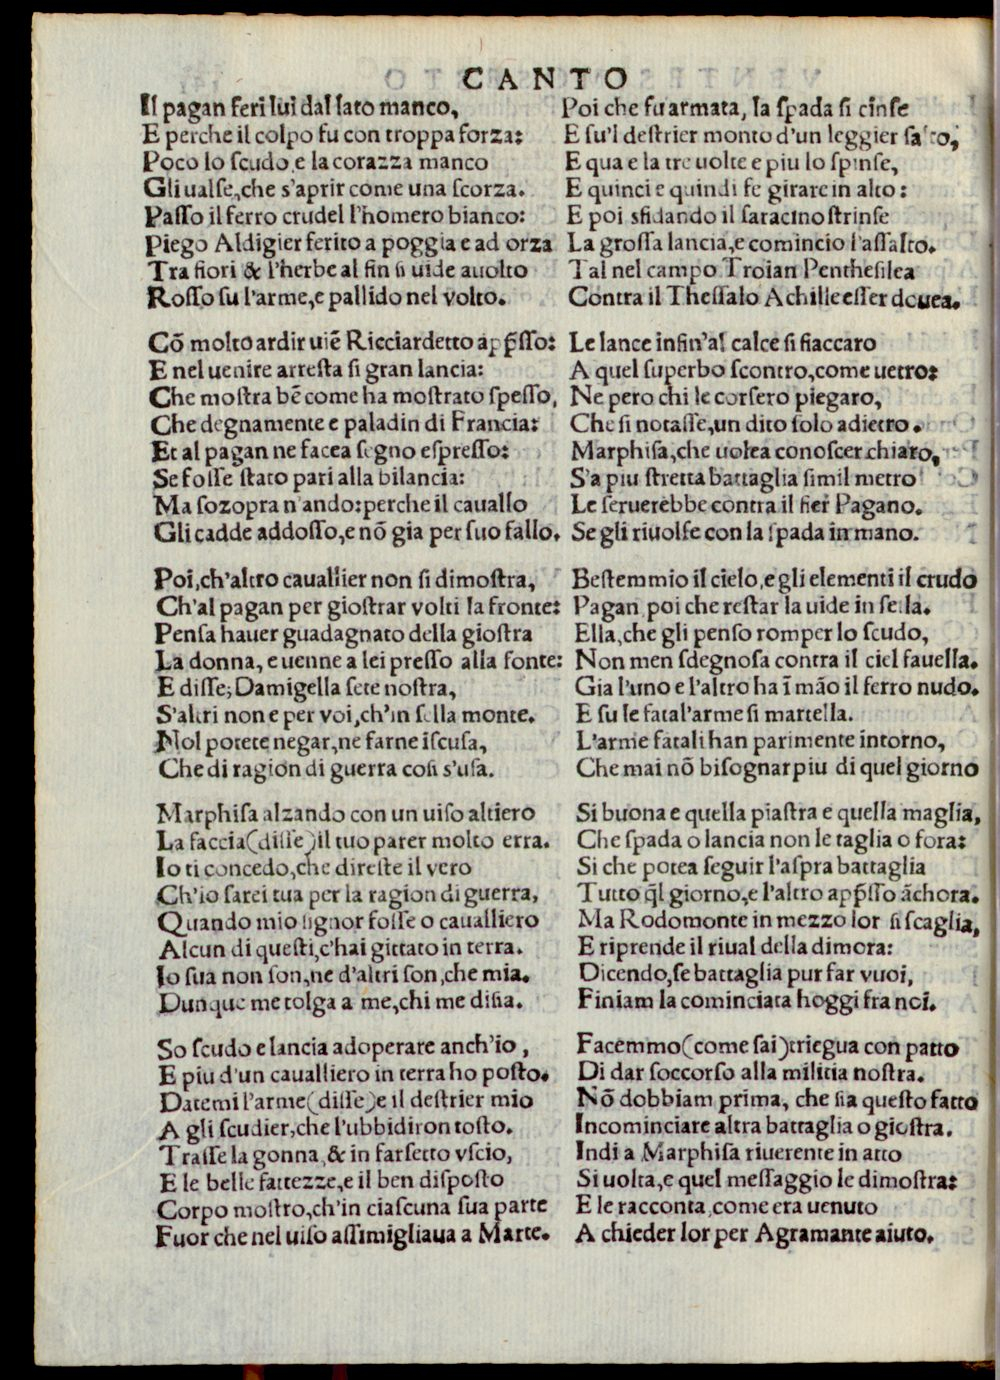 CANTO
Il pagan ferì lui dal lato manco,
E perche il colpo fu con troppa forza:
Poco lo scudo, e la corazza manco
Gli ualse, che s'aprir come una scorza.
Passo il ferro crudel l'homero bianco:
Piego Aldigier ferito a poggia e ad orza
Tra fiori & l'herbe al fin si uide auolto
Rosso su l'arme, e pallido nel volto.
Cõ molto ardir uiẽ Ricciardetto app̃sso:
E nel uenire arresta si gran lancia:
Che mostra bẽ come ha mostrato spesso,
Che degnamente e paladin di Francia:
Et al pagan ne facea segno espresso:
Se fosse stato pari alla bilancia:
Ma sozopra n'ando: perche il cauallo
Gli cadde addosso, e nõ gia per suo fallo.
Poi, ch'altro cauallier non si dimostra,
Ch'al pagan per giostrar volti la fronte:
Pensa hauer guadagnato della giostra
La donna, e uenne a lei presso alla fonte:
E disse; Damigella sete nostra,
S'altri non e per voi, ch'in sella monte.
Nol potete negar, ne farne iscusa,
Che di ragion di guerra cosi s'usa.
Marphisa alzando con un uiso altiero
La faccia (disse) il tuo parer molto erra.
Io ti concedo, che direste il vero
Ch'io sarei tua per la ragion di guerra,
Quando mio signor fosse o caualliero
Alcun di questi, c'hai gittato in terra.
Io sua non son, ne d'altri son, che mia.
Dunque me tolga a me, chi me disia.
So scudo e lancia adoperare anch'io,
E piu d'un caualliero in terra ho posto.
Datemi l'arme (disse) e il destrier mio
A gli scudier, che l'ubbidiron tosto.
Trasse la gonna, & in farsetto vscio,
E le belle fattezze, e il ben disposto
Corpo mostro, ch'in ciascuna sua parte
Fuor che nel uiso assimigliaua a Marte.
Poi che fu armata, la spada si cinse
E su'l destrier monto d'un leggier salto,
E qua e la tre uolte e piu lo spinse,
E quinci e quindi fe girare in alto:
E poi sfidando il saracino strinse
La grossa lancia, e comincio l'assalto.
Tal nel campo Troian Penthesilea
Contra il Thessalo Achille esser douea.
Le lance infin'al calce si fiaccaro
A quel superbo scontro, come uetro:
Ne pero chi le corsero piegaro,
Che si notasse, un dito solo adietro.
Marphisa, che uolea conoscer chiaro,
S'a piu stretta battaglia simil metro
Le seruerebbe contra il fier Pagano.
Se gli riuolse con la spada in mano.
Bestemmio il cielo, e gli elementi il crudo
Pagan, poi che restar la uide in sella.
Ella, che gli penso romper lo scudo,
Non men sdegnosa contra il ciel fauella.
Gia l'uno e l'altro ha ĩ mão il ferro nudo.
E su le fatal'arme si martella.
L'arme fatali han parimente intorno,
Che mai nõ bisognar piu di quel giorno
Si buona e quella piastra e quella maglia,
Che spada o lancia non le taglia o fora:
Si che potea seguir l'aspra battaglia
Tutto q̃l giorno, e l'altro app̃sso ãchora.
Ma Rodomonte in mezzo lor si scaglia,
E riprende il riual della dimora:
Dicendo, se battaglia pur far vuoi,
Finiam la cominciata hoggi fra noi.
Facemmo (come sai) triegua con patto
Di dar soccorso alla militia nostra.
Nõ dobbiam prima, che sia questo fatto
Incominciare altra battaglia o giostra.
Indi a Marphisa riuerente in atto
Si uolta, e quel messaggio le dimostra:
E le racconta, come era uenuto
A chieder lor per Agramante aiuto.